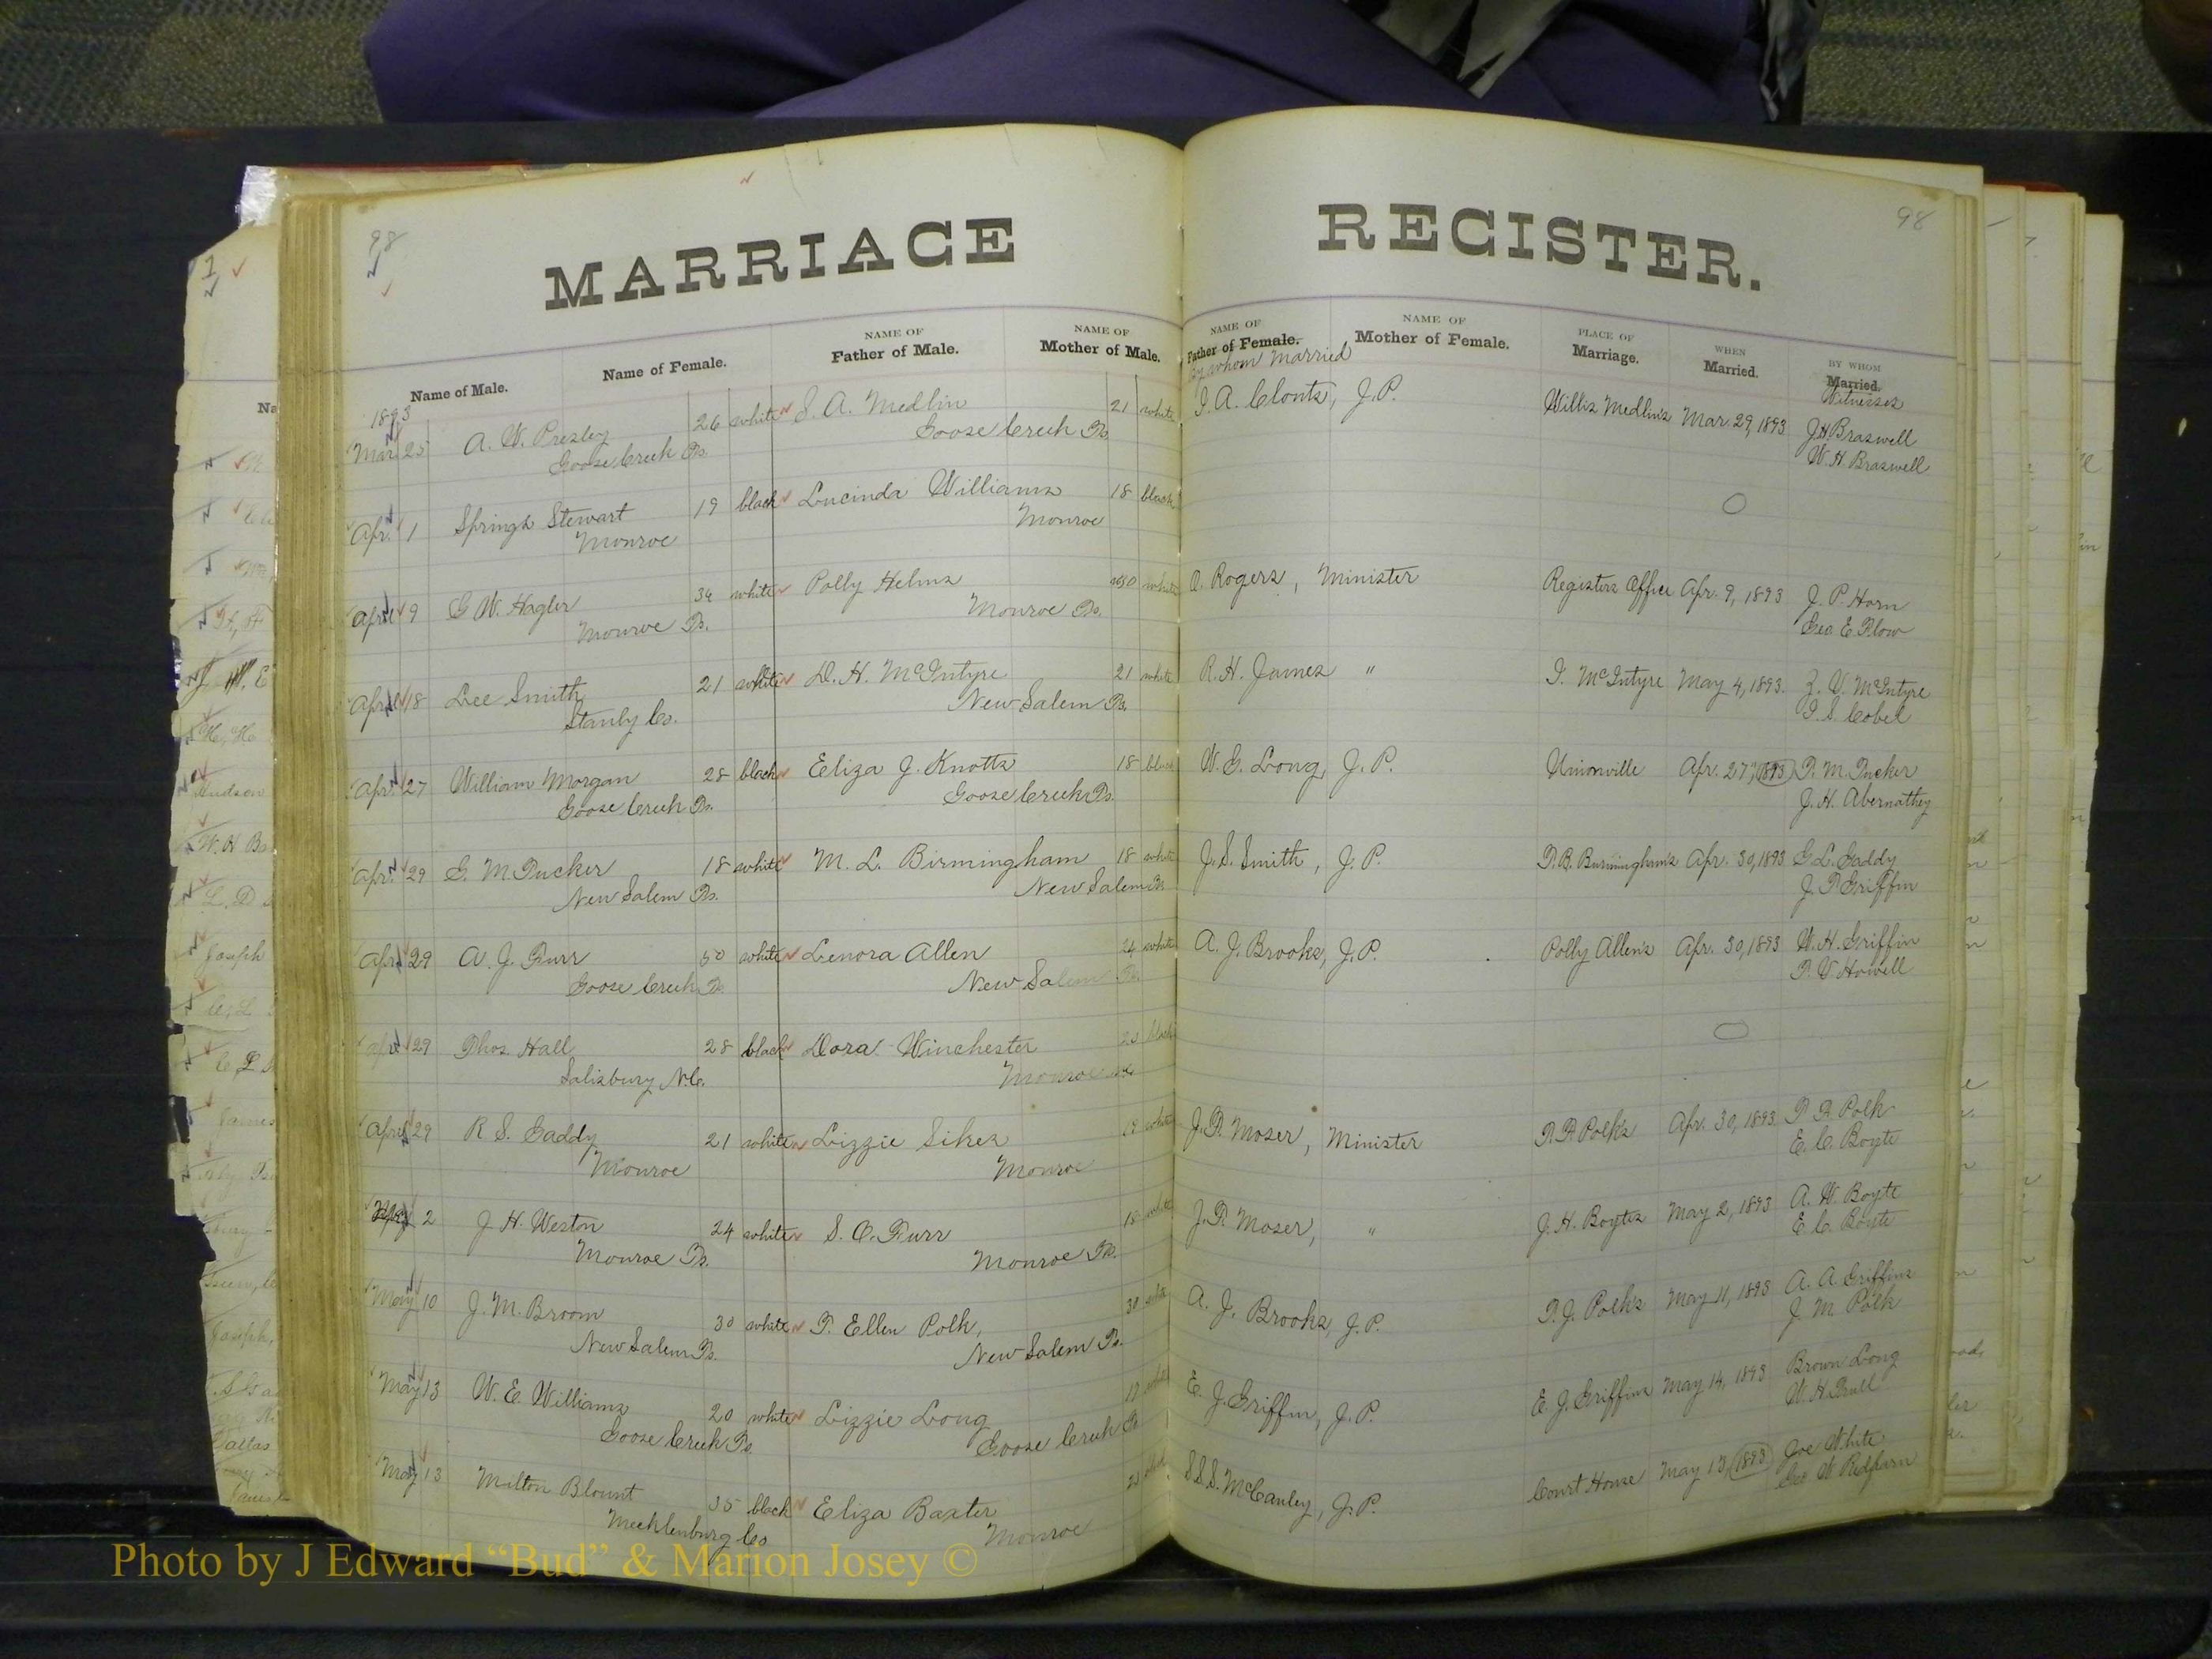 98
98
MARRIAGE REGISTER.
Name of Male.
Name of Female.
NAME OF
Father of Male.
NAME OF
Mother of Male.
NAME OF
Father of Female.
By whom Married
NAME OF
Mother of Female.
PLACE OF
Marriage.
WHEN
Married.
BY WHOM
Married.
Witnesses
1893
Mar 25 A. W. Presley 26 white S. A. Medlin 21 white J. A. Clontz, J.P. Willis Medlin's Mar. 29, 1893 J H Braswell
Goose Creek Ts. Goose Creek Ts. W. H. Braswell
Apr. 1 Springs Stewart 19 black Lucinda Williams 18 black
Monroe Monroe
April 9 G W. Hagler 34 white Polly Helms 30 white O. Rogers, Minister Registers Office Apr. 9, 1893 J. P. Horn
Monroe Ts. Monroe Ts. Geo. E. Flow
April 18 Lee Smith 21 white D. H. McIntyre 21 white R. H. James " I. McIntyre May 4, 1893. Z. V. McIntyre
Stanly Co. New Salem Ts. I. S. Cobel
Apr. 27 William Morgan 28 black Eliza J. Knotts 18 black W. G. Long, J. P. Unionville Apr. 27, 1893 T. M. Tucker
Goose Creek Ts. Goose Creek Ts. J. H. Abernathey
Apr. 29 G. M. Tucker 18 white M. L. Birmingham 18 white J. S. Smith, J. P. Apr. 30, 1893 G. L. Gaddy
New Salem Ts. New Salem Ts J. T. Griffin
Apr. 29 A. J. Furr 50 white Lenora Allen 24 white A. J. Brooks, J. P. Polly Allen's Apr. 30, 1893 W. H. Griffin
Goose Creek Ts. New Salem Ts. T. V. Howell
Apr. 29 Thos. Hall 28 black Dora Winchester 23 black
Salisbury N.C. Monroe
April 29 R S. Gaddy 21 white Lizzie Sikes 19 white J. T. Moser, Minister Polk's Apr. 30, 1893 Polk
Monroe Monroe E. C. Boyte
May 2 J. H. Weston 24 white S. O. Furr 18 white J. F. Moser, " J. H. Boyte's May 2, 1893 A. W. Boyte
Monroe Ts. Monroe Ts. E. C. Boyte
May 10 J. M. Broom 30 white T. Ellen Polk, 30 white A. J. Brooks, J. P. T. J. Polk's May 11, 1893 A. A. Griffin
New Salem Ts. New Salem Ts. J. M. Polk
May 13 W. E. Williams 20 white Lizzie Long E. J. Griffin, J. P. E. J. Griffin's May 14, 1893 Brown Long
Goose Creek Ts. Goose Creek Ts W. H. Trull
May 13 Milton Blount 35 black Eliza Baxter S. S. S. McCauley, J. P. Court House May 13, 1893 Joe White
Mecklenburg Co Monroe Geo W. Redfearn
Photo by J Edward “Bud” & Marion Josey ©